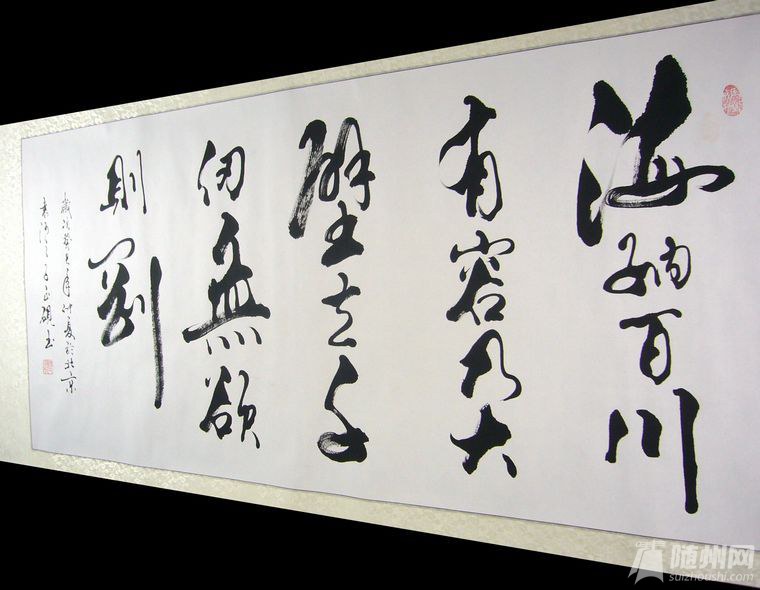 海納百川
有容乃大
壁立千
仞無欲
則剛
歲次癸巳年仲夏於北京
随州网
suizhoushi.com